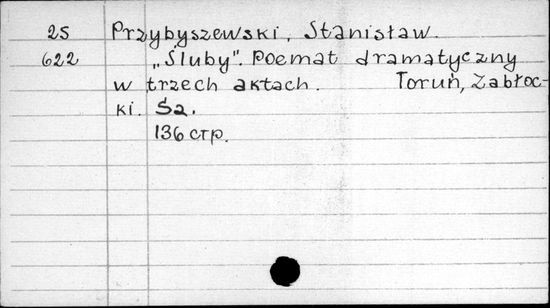 25 Przybyszewski, Stanisław.
622 „Śluby". Poemat dramatyczny
w trzech aktach. Toruń, Zabłoc-
ki. Sa.
136 стр.